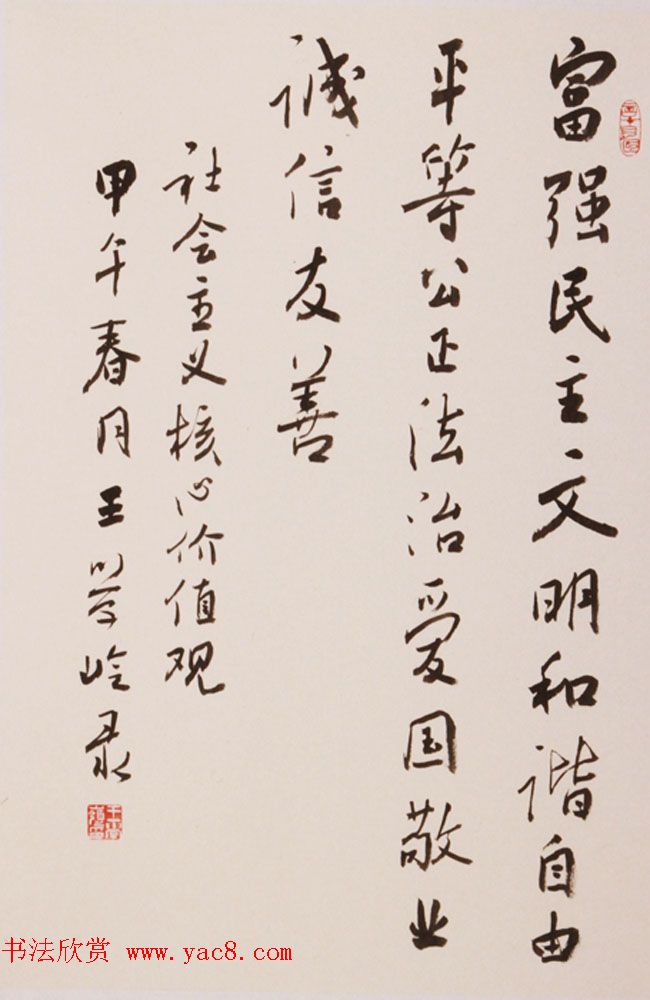 富强民主文明和谐自由
平等公正法治爱国敬业
诚信友善
社会主义核心价值观
甲午春月王学岭录
书法欣赏 www.yac8.com